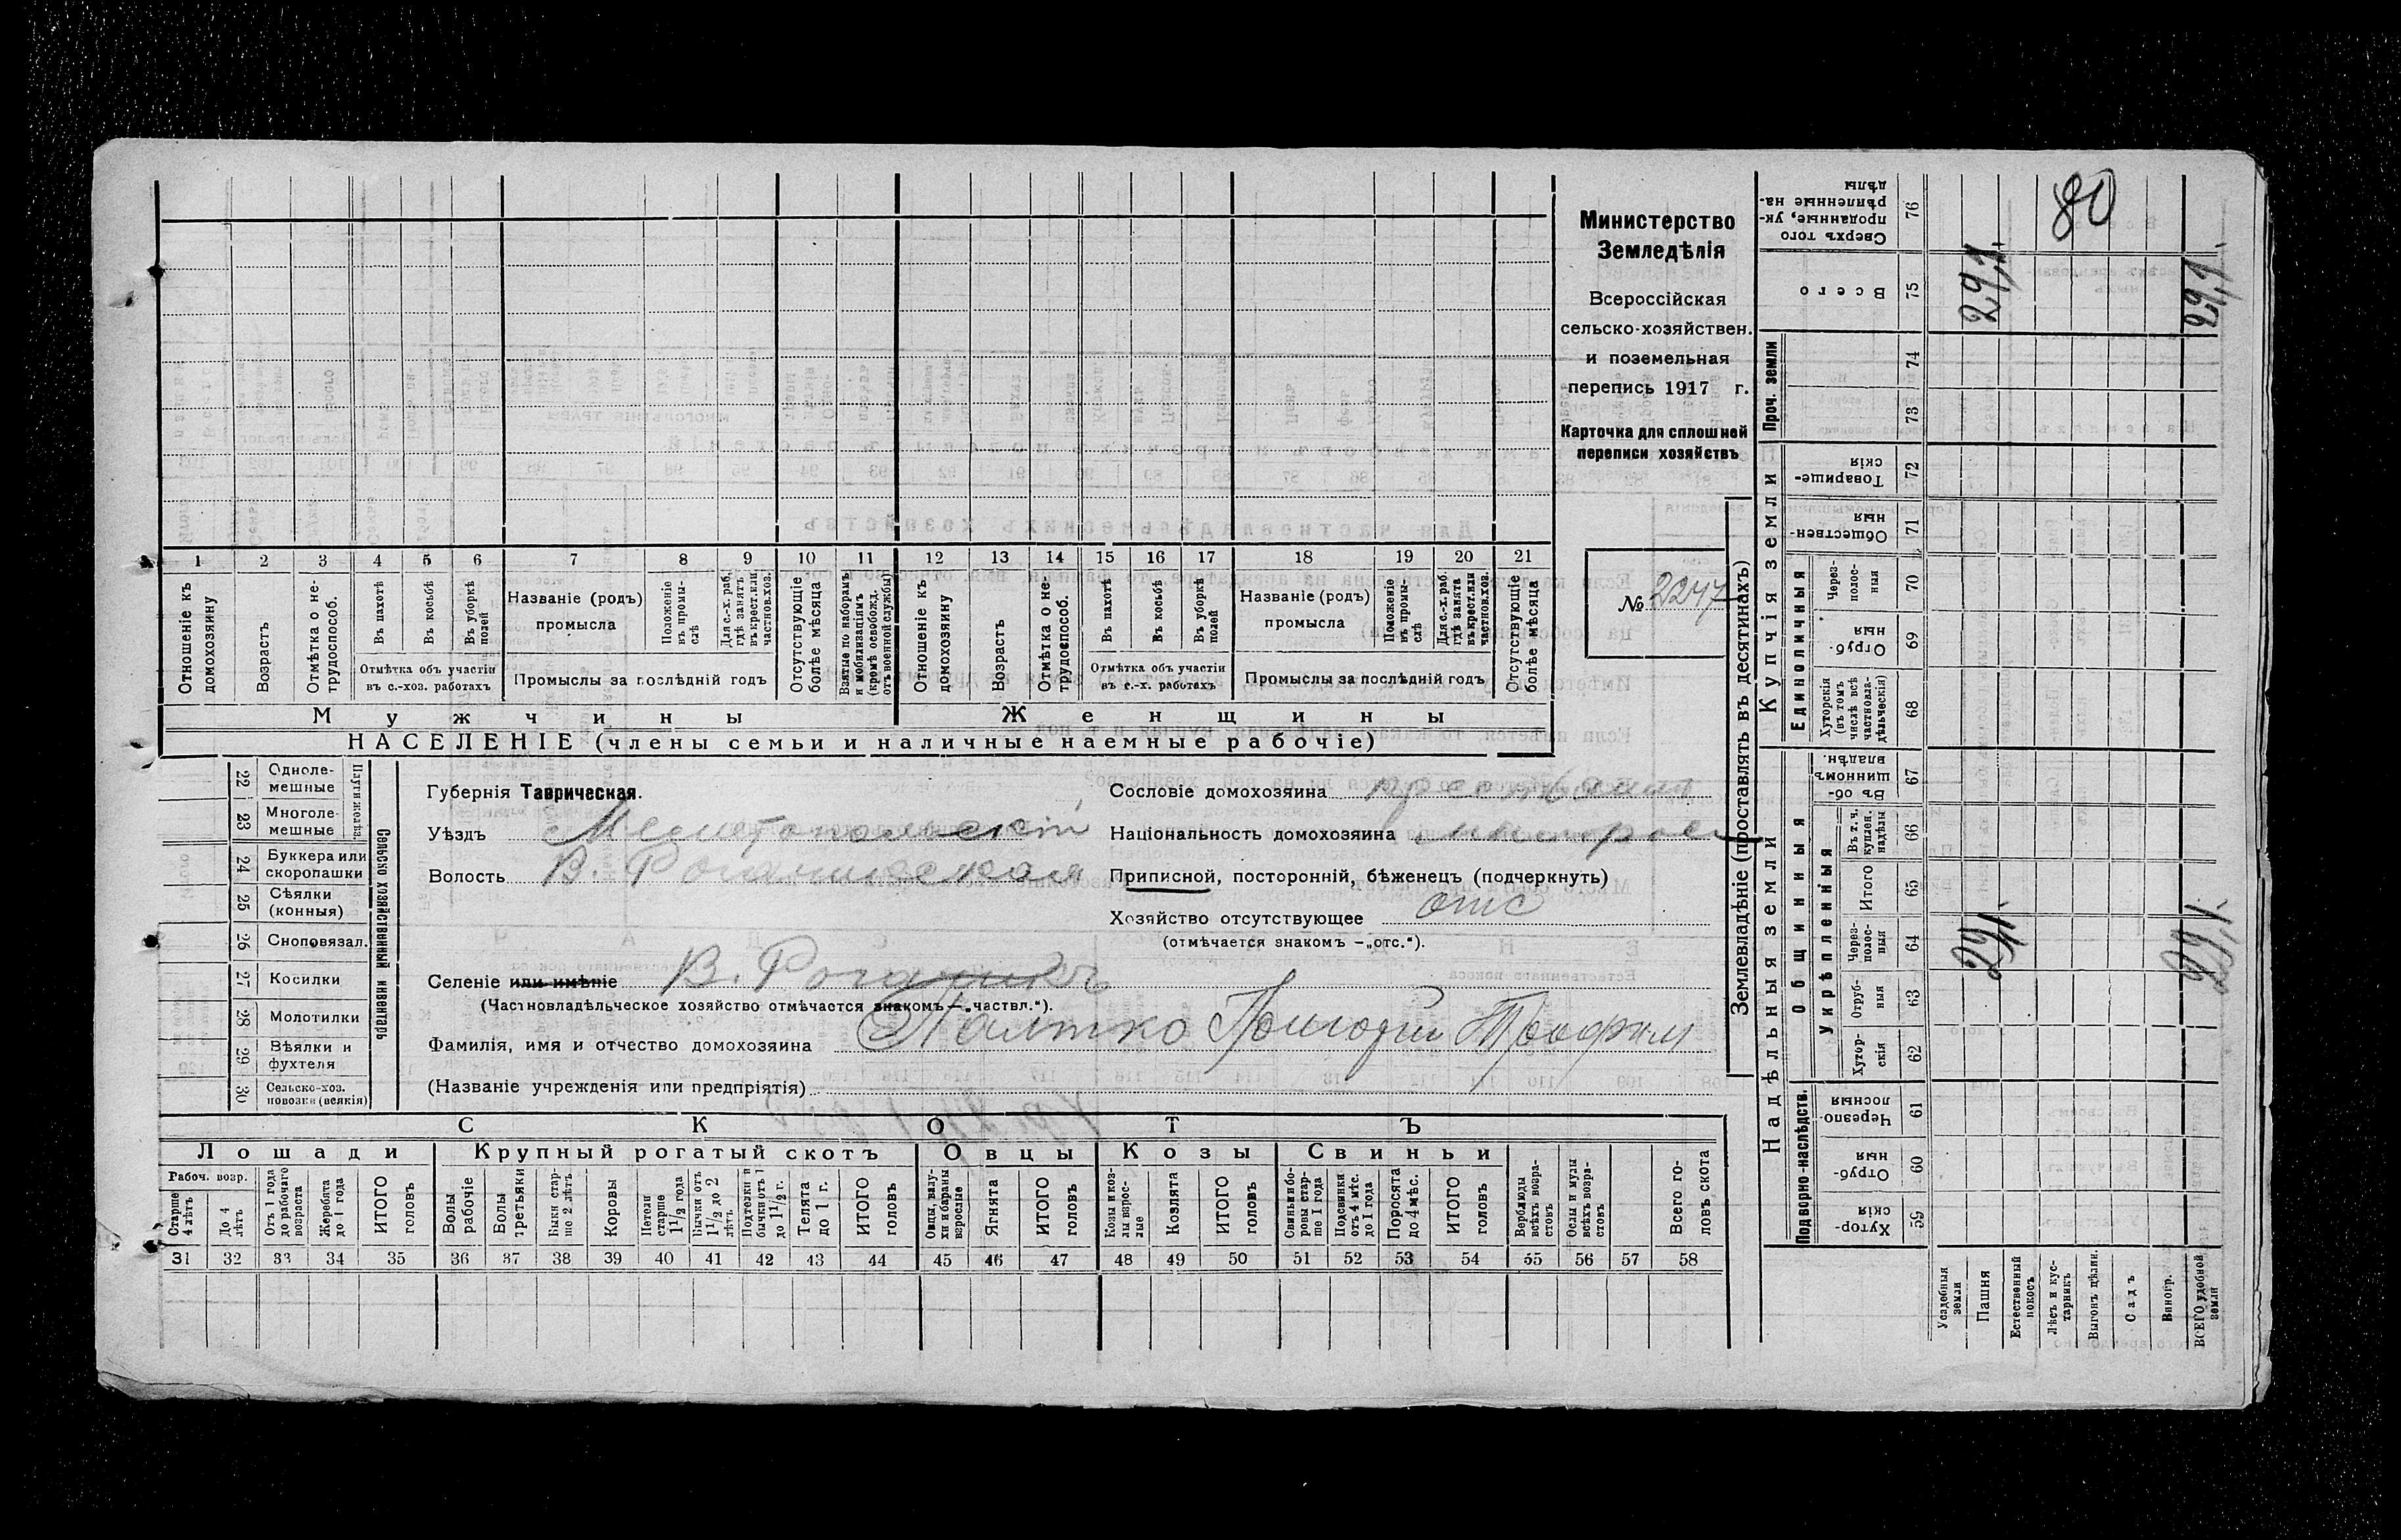 Министерство
Земледѣлія
Всероссійская
сельско-хозяйствен.
и поземельная
перепись 1917 г.
Карточка для сплошней
переписи хозяйствъ
№ 2247
80
1 2 3 4 5 6 7 8 9 10 11 12 13 14 15 16 17 18 19 20 21
Отношеніе къ домохозяину
Возрастъ
Отмѣтка о не-трудоспособ.
Въ пахотѣ
Въ косьбѣ
Въ уборкѣ полей
Отмѣтка объ участіи
въ с.-хоз. работахъ
Названіе (родъ)
промысла
Положеніе въ промы-слѣ
Для с.-х. раб. гдѣ занятъ въ крест. или частнов. хоз.
Промыслы за послѣдній годъ
Отсутствующіе болѣе мѣсяца
Взятые по наборамъ и мобилизаціямъ (кромѣ освобожд. отъ военной службы)
Отношеніе къ домохозяину
Возрастъ
Отмѣтка о не-трудоспособ.
Въ пахотѣ
Въ косьбѣ
Въ уборкѣ полей
Отмѣтка объ участіи
въ с.-х. работахъ
Названіе (родъ)
промысла
Положеніе въ промы-слѣ
Для с.-х. раб. гдѣ занята въ крест. или частнов. хоз.
Промыслы за послѣдній годъ
Отсутствующіе болѣе мѣсяца
Мужчины
Женщины
НАСЕЛЕНІЕ (члены семьи и наличные наемные рабочіе)
22 Одноле-мешные
23 Многоле-мешные
24 Буккера или скоропашки
25 Сѣялки (конныя)
26 Сноповязал.
27 Косилки
28 Молотилки
29 Вѣялки и фухтеля
30 Сельско-хоз. повозки (всякія)
Сельско хозяйственный инвентарь
Губернія Таврическая.
Уѣздъ Мелитопольскій
Волость В. Рогачикская
Селеніе или имѣніе В. Рогачикъ
(Частновладѣльческое хозяйство отмѣчается знакомъ — „частвл.“).
Фамилія, имя и отчество домохозяина
(Названіе учрежденія или предпріятія)
Сословіе домохозяина
Національность домохозяина
Приписной, посторонній, бѣженецъ (подчеркнуть)
Хозяйство отсутствующее отс
(отмѣчается знакомъ —„отс.“).
СКОТЪ
Лошади Крупный рогатый скотъ Овцы Козы Свиньи
Рабоч. возр.
Старше 4 лѣтъ
До 4 лѣтъ
Отъ 1 года до рабочаго возраста
Жеребята до 1 года
ИТОГО головъ
Волы рабочіе
Волы третьяки
Быки стар-ше 2 лѣтъ
Коровы
Нетели старше 1 1/2 года
Бычки отъ 1 1/2 до 2 лѣтъ
Подтелки и бычки отъ 1 до 1 1/2 г.
Телята до 1 г.
ИТОГО головъ
Овцы, валу-хи и бараны взрослые
Ягнята
ИТОГО головъ
Козы и коз-лы взрос-лые
Козлята
ИТОГО головъ
Свиньи и бо-ровы стар-ше 1 года
Подсвинки отъ 4 мѣс. до 1 года
Поросята до 4 мѣс.
ИТОГО головъ
Верблюды всѣхъ возра-стовъ
Ослы и мулы всѣхъ возра-стовъ
Всего го-ловъ скота
31 32 33 34 35 36 37 38 39 40 41 42 43 44 45 46 47 48 49 50 51 52 53 54 55 56 57 58
Землевладѣніе (проставлять въ десятинахъ)
Надѣльныя земли
Купчія земли
Подворно-наслѣдств.
Общинныя
Укрѣпленныя
Единоличныя
Проч. земли
Сверхъ того проданные, ук-рѣпленные на-дѣлы 76
Всего 75 29,1 29,1
74
73
Товарище-скія 72
Обществен-ныя 71
Через-полос-ныя 70
Отруб-ныя 69
Хуторскія (въ томъ числѣ всѣ частновла-дѣльческія) 68
Въ об-щинномъ владѣн. 67
Въ т. ч. куплен. надѣлы 66
Итого 65
Через-полос-ныя 64 29,1 29,1
Отруб-ныя 63
Хутор-скія 62
Черезпо-лосныя 61
Отруб-ныя 60
Хутор-скія 59
Усадебныя земли
Пашня
Естественный покосъ
Лѣсъ и кус-тарникъ
Выгонъ цѣлин.
Садъ
Виногр.
ВСЕГО удобной земли